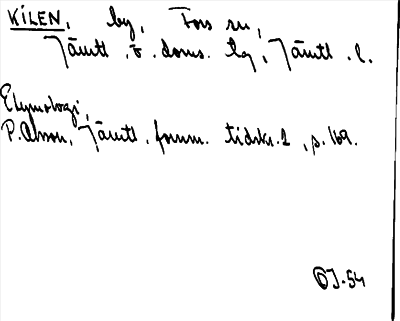 KILEN, by, Fors sn,
Jämtl. ö. doms. lg, Jämtl. l.
Etymologi,
P. Olsson, Jämtl. fornm. tidskr. 2, s. 169.
OJ. 54